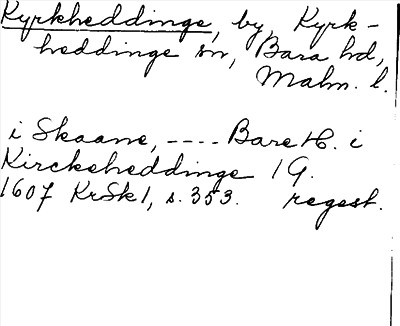 Kyrkheddinge, by, Kyrk-
heddinge sn, Bara hd,
Malm. l.
i Skaane, ---- Bare H. i
Kirckeheddinge 1 G.
1607 KrSk1, s. 353. regest.